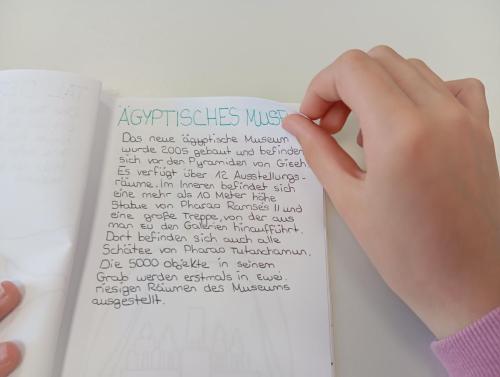 ÄGYPTISCHES MUS
Das neue ägyptische Museum
wurde 2005 gebaut und befindet
sich vor den Pyramiden von Gizeh.
Es verfügt über 12 Ausstellungs-
räume. Im Inneren befindet sich
eine mehr als 10 Meter hohe
Statue von Pharao Ramses II und
eine große Treppe, von der aus
man zu den Galerien hinaufführt.
Dort befinden sich auch alle
Schätze von Pharao Tutanchamun.
Die 5000 Objekte in seinem
Grab werden erstmals in zwei
riesigen Räumen des Museums
ausgestellt.